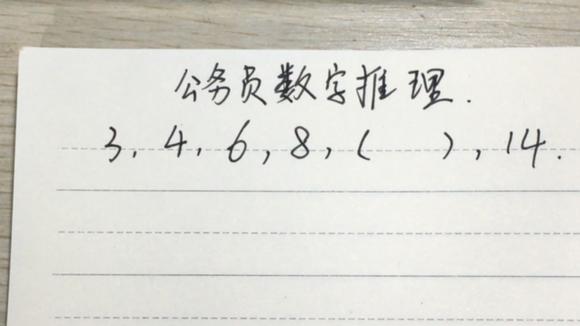 公务员数字推理.
3, 4, 6, 8, (    ), 14.